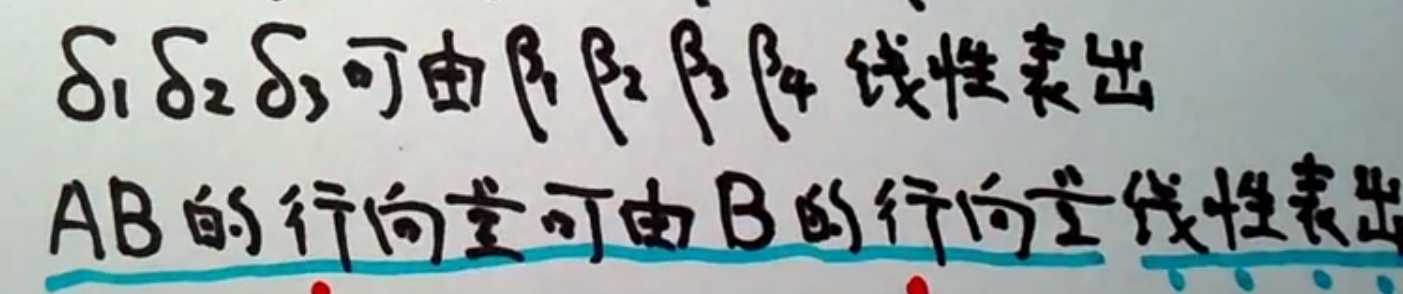 δ1 δ2 δ3 可由 β1 β2 β3 β4 线性表出
AB 的行向量可由 B 的行向量线性表出